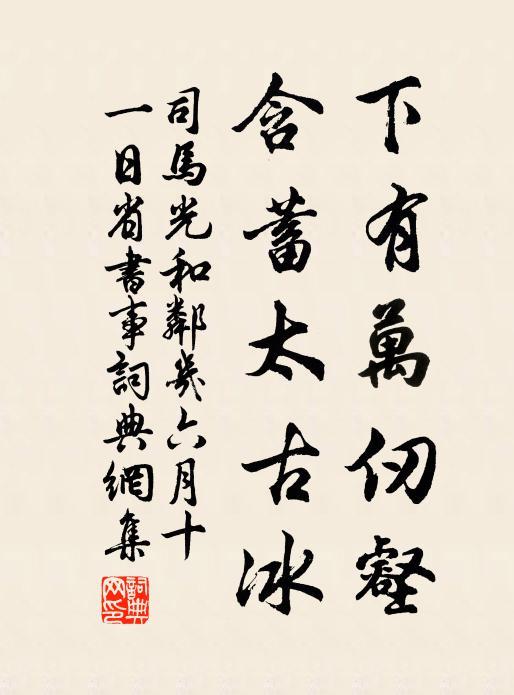 下有萬仞壑
含蓄太古冰
司馬光和鄰幾六月十
一日省書事詞典網集
詞典網印